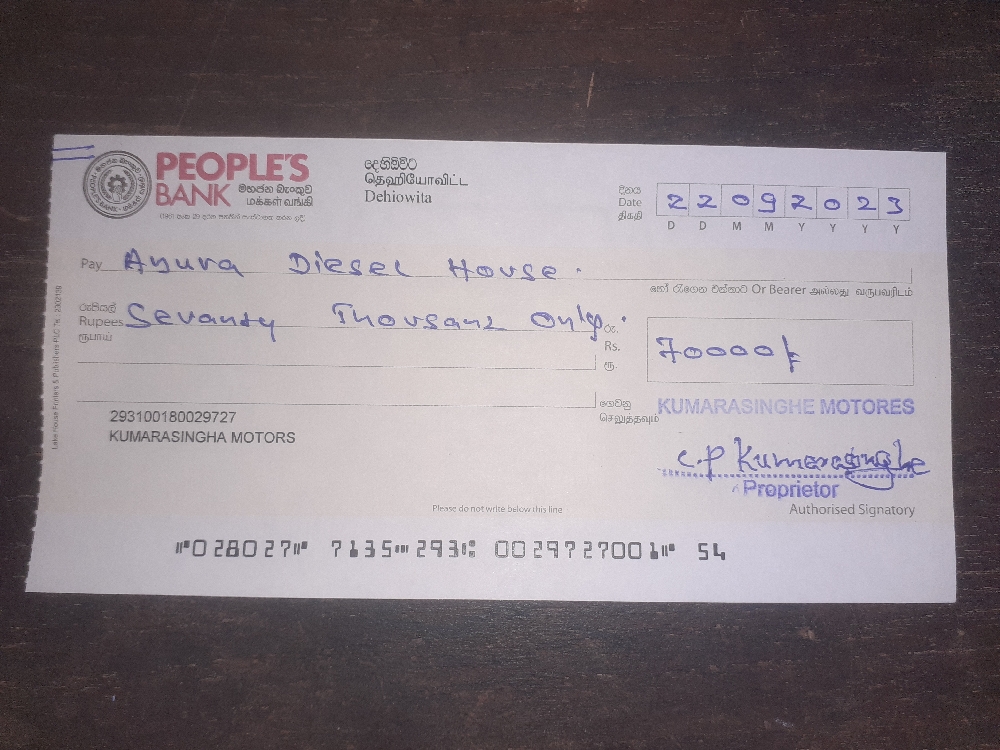 PEOPLE'S
BANK මහජන බැංකුව
மக்கள் வங்கி
දෙහිඕවිට
தெஹியோவிட்ட
Dehiowita
දිනය
Date
திகதி
2 2 0 9 2 0 2 3
D D M M Y Y Y Y
Pay Anura Diesel House.
හෝ රැගෙන එන්නාට Or Bearer அல்லது வருபவரிடம்
රුපියල්
Rupees Sevanty Thousanz Only.
ரூபாய்
රු.
Rs. 70000/-
ரூ.
ගෙවනු
செலுத்தவும்
293100180029727
KUMARASINGHA MOTORS
KUMARASINGHE MOTORES
C.P Kumarasinghe
Proprietor
Authorised Signatory
Please do not write below this line
⑈028027⑈ 7135⑉293⑆ 0029727001⑈ 54